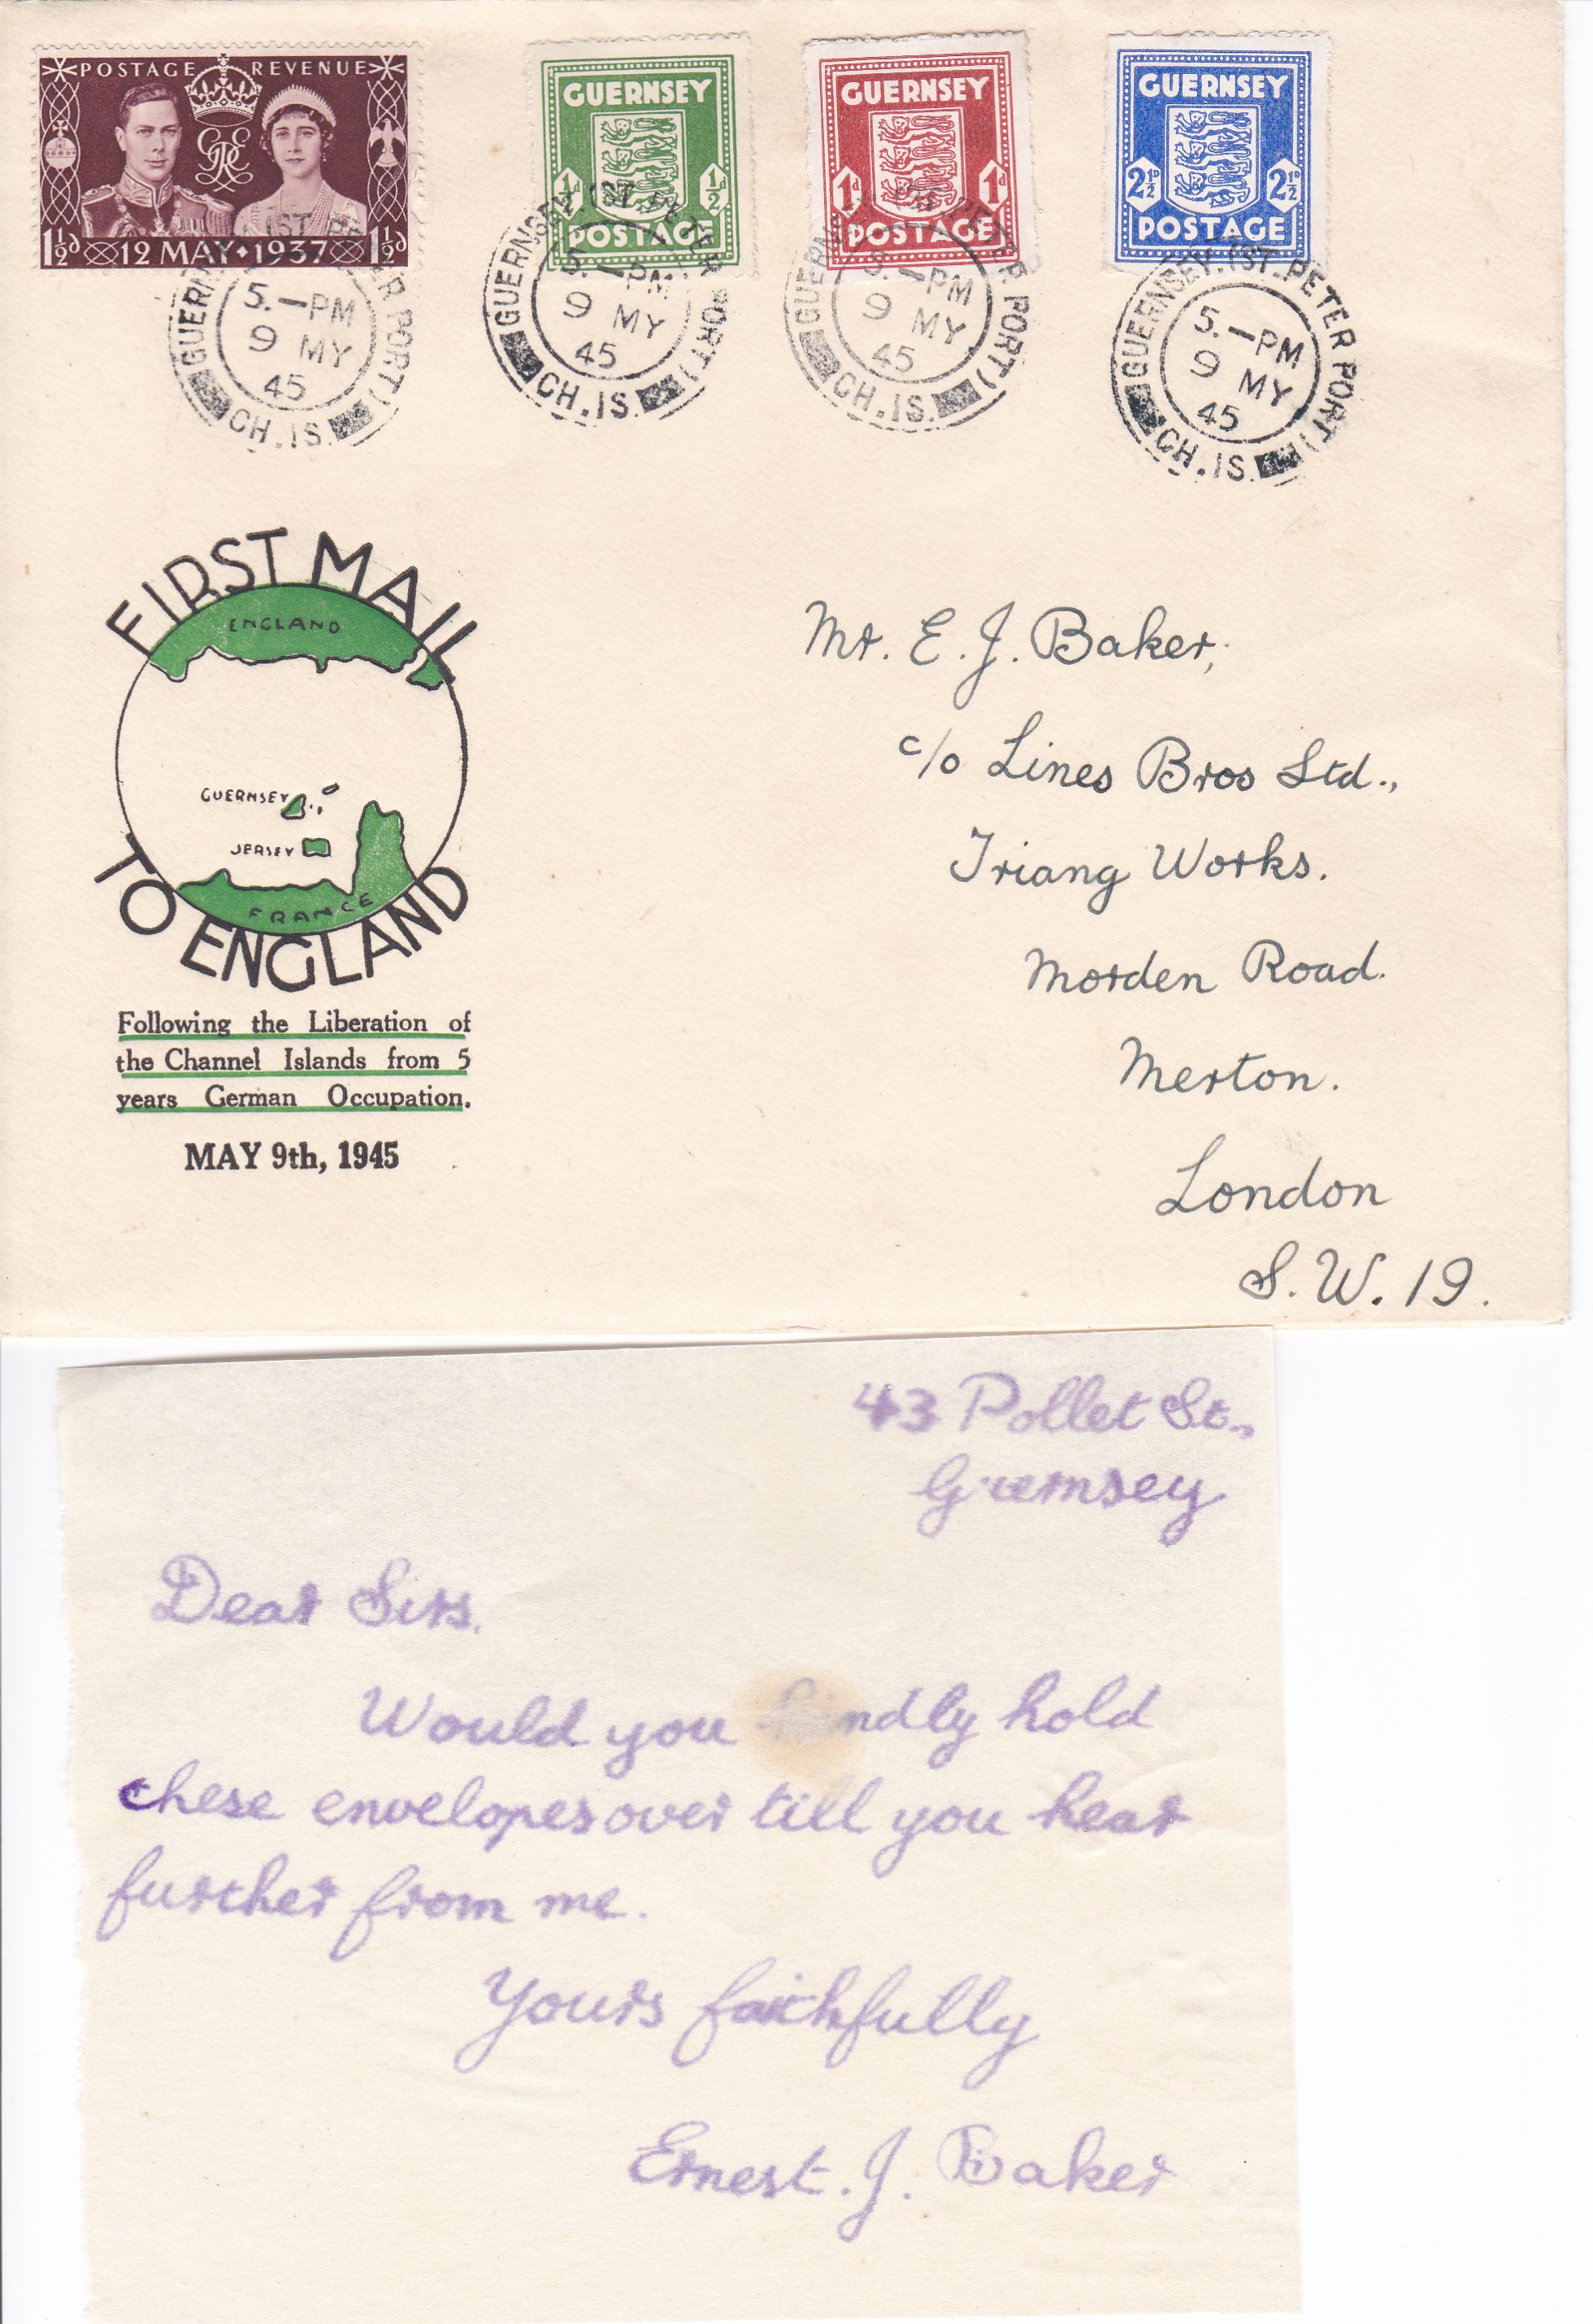 POSTAGE REVENUE
1½d 12 MAY · 1937 1½d
GUERNSEY
½d ½
POSTAGE
GUERNSEY
1d 1d
POSTAGE
GUERNSEY
2½D 2½D
POSTAGE
GUERNSEY. (ST. PETER PORT)
5.—PM
9 MY
45
CH.IS.
GUERNSEY. (ST. PETER PORT)
5.—PM
9 MY
45
CH.IS.
GUERNSEY. (ST. PETER PORT)
5.—PM
9 MY
45
CH.IS.
GUERNSEY. (ST. PETER PORT)
5.—PM
9 MY
45
CH.IS.
FIRST MAIL
ENGLAND
GUERNSEY
JERSEY
FRANCE
TO ENGLAND
Following the Liberation of
the Channel Islands from 5
years German Occupation.
MAY 9th, 1945
Mr. E. J. Baker,
c/o Lines Bros Ltd.,
Triang Works.
Morden Road.
Merton.
London
S.W.19.
43 Pollet St.,
Guernsey
Dear Sirs.
Would you kindly hold
these envelopes over till you hear
further from me.
Yours faithfully
Ernest. J. Baker